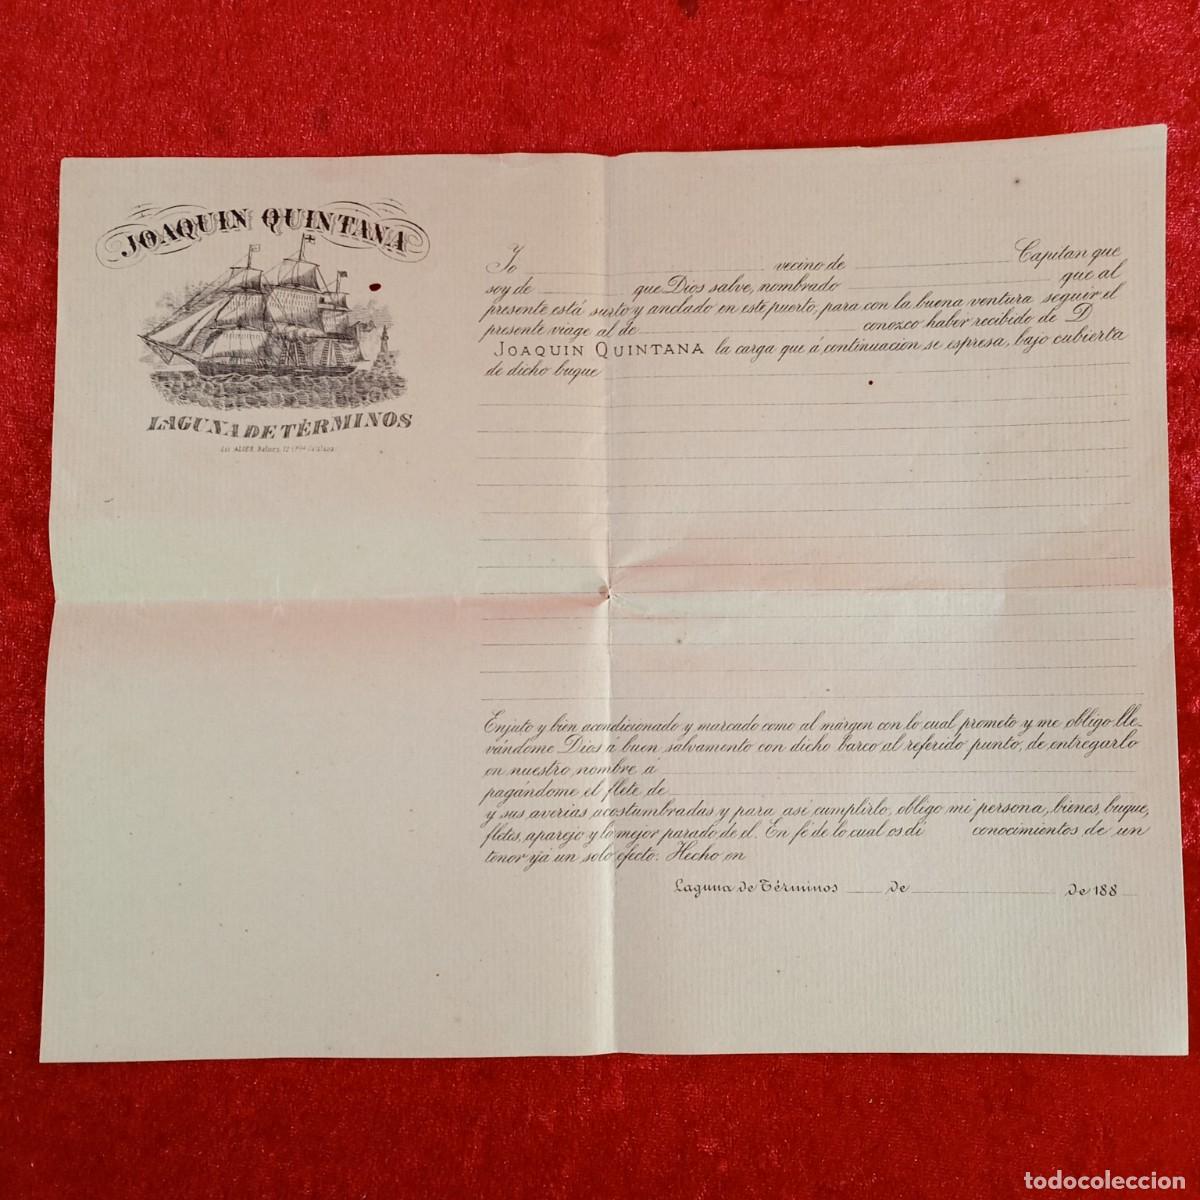 JOAQUIN QUINTANA
LAGUNA DE TÉRMINOS
Lit. ALIER, Balmes, 12
Yo vecino de Capitan que
soy de que Dios salve, nombrado que al
presente está surto y anclado en este puerto, para con la buena ventura seguir el
presente viage al de conozco haber recibido de D
JOAQUIN QUINTANA la carga que á continuacion se espresa, bajo cubierta
de dicho buque
Enjuto y bien acondicionado y marcado como al márgen con lo cual prometo y me obligo lle-
vándome Dios á buen salvamento con dicho barco al referido punto, de entregarlo
en nuestro nombre á
pagándome el flete de
y sus averias acostumbradas y para asi cumplirlo, obligo mi persona, bienes, buque,
fletes, aparejo y lo mejor parado de el. En fé de lo cual os di conocimientos de un
tenor y á un solo efecto. Hecho en
Laguna de Términos de de 188
todocoleccion